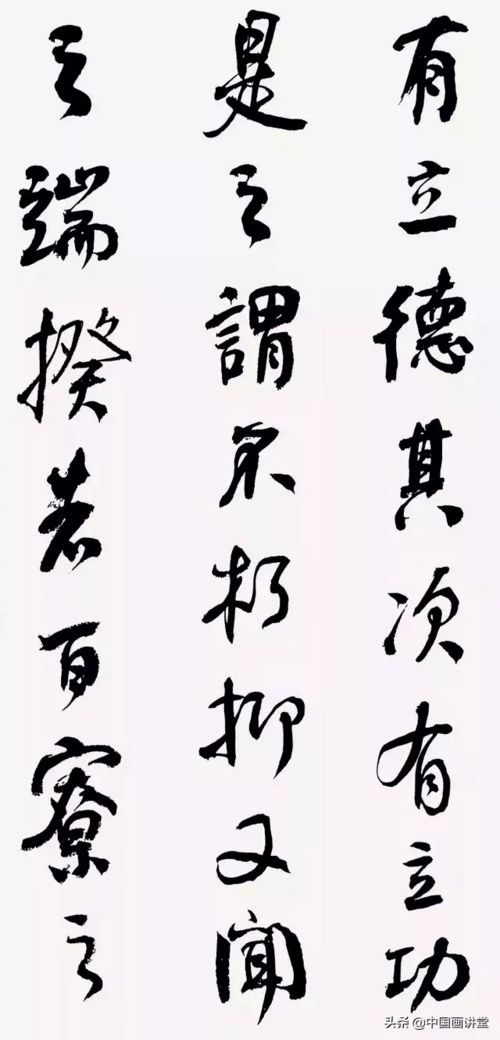 有立德其次有立功
是之謂不朽抑又聞
之端揆者百寮之
头条 @中国画讲堂